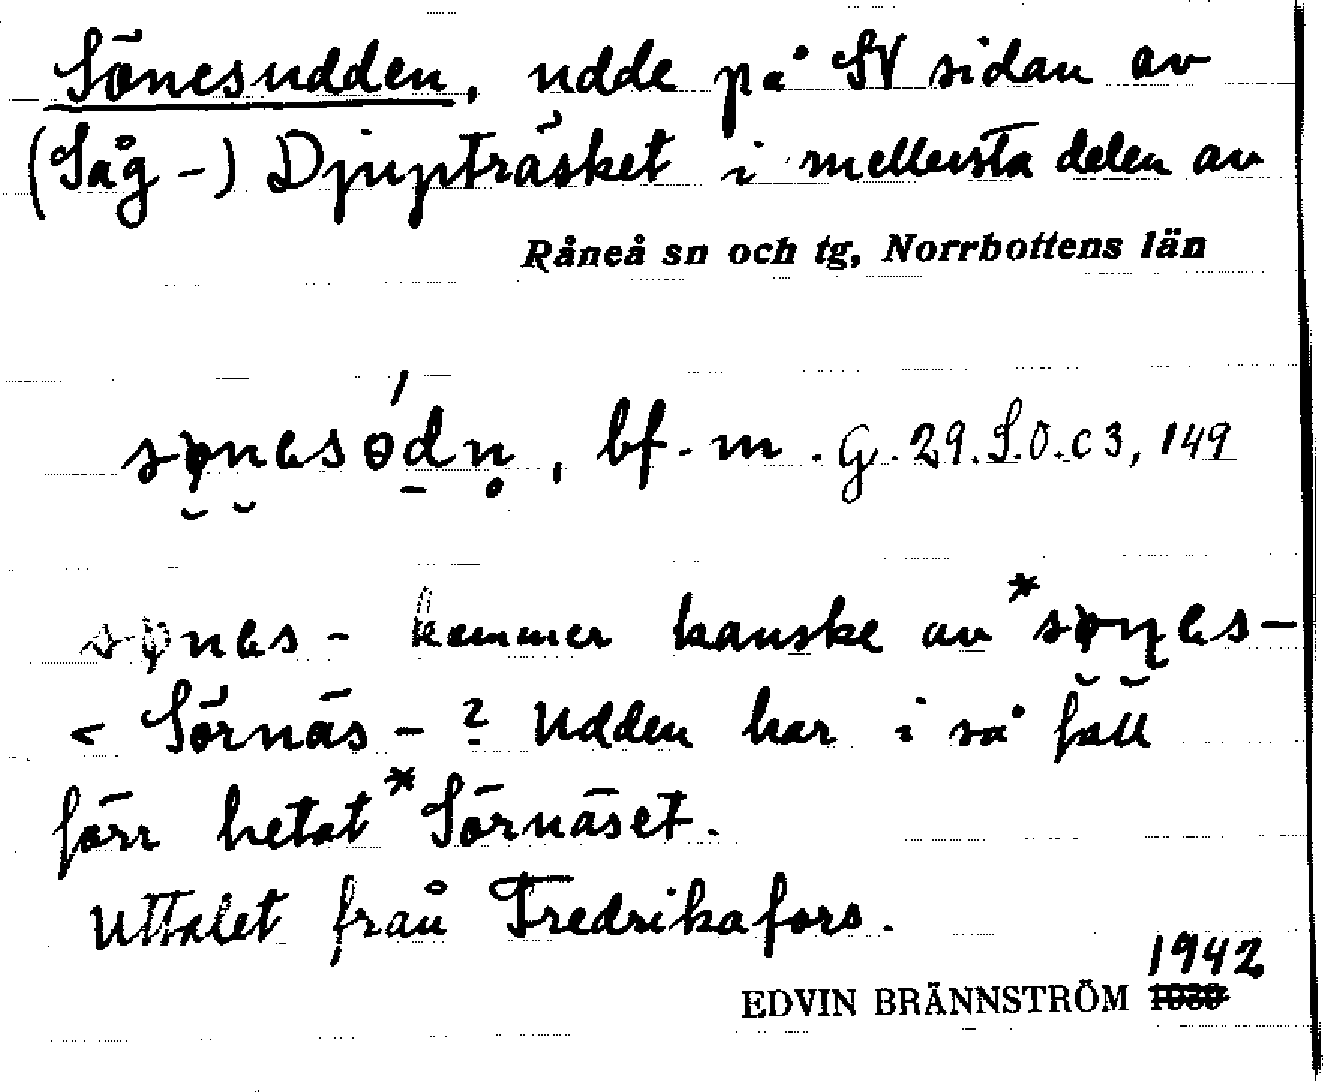 Sönesudden, udde på SV sidan av
(Såg-) Djupträsket i mellersta delen av
Råneå sn och tg, Norrbottens län
bf. m. G. 29. S.O. c 3, 149
kommer kanske av
< Sörnäs - ? Udden har i så fall
förr hetat *Sörnäset.
Uttalet från Fredrikafors.
1942
EDVIN BRÄNNSTRÖM 1939